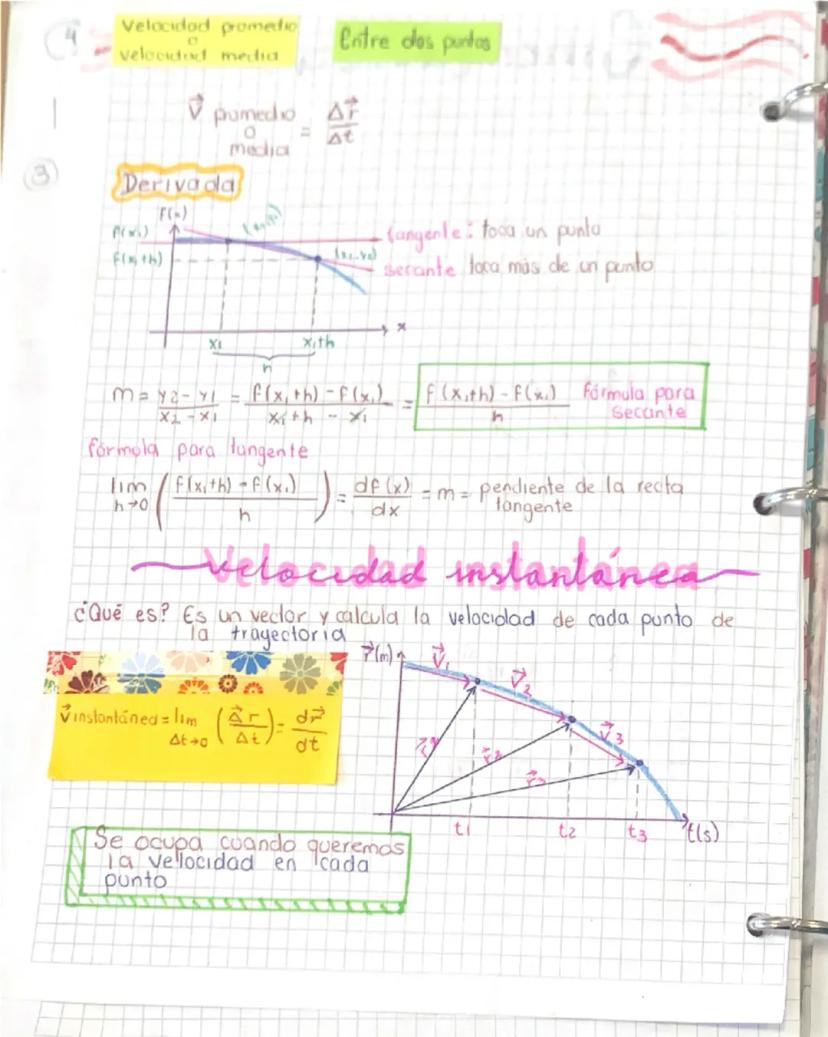 4
Velocidad promedio
o
velocidad media
Entre dos puntos
V⃗ promedio o media = Δr⃗/Δt
3
Derivada
F(x)
f(x₁)
f(x₁+h)
(x₂,y₂)
tangente: toca un punto
secante toca más de un punto
x
x₁ x₁+h
h
m = y2 - y1/x2 - x1 = f(x₁+h) - f(x₁)/x₁+h - x₁ = f(x₁+h) - f(x₁)/h fórmula para secante
fórmula para tangente
lim h→0 (f(x₁+h) - f(x₁)/h) = df(x)/dx = m = pendiente de la recta tangente
Velocidad instantánea
¿Qué es? Es un vector y calcula la velocidad de cada punto de
la trayectoria
V⃗ instantánea = lim Δt→0 (Δ⃗r/Δt) = dr⃗/dt
r⃗(m)
V⃗₁
V⃗₂
V⃗3
r⃗1
r⃗2
r⃗3
t1 t2 t3 t(s)
Se ocupa cuando queremos
la velocidad en cada
punto